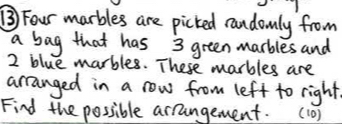 (13) Four marbles are picked randomly from
a bag that has 3 green marbles and
2 blue marbles. These marbles are
arranged in a row from left to right.
Find the possible arrangement. (10)